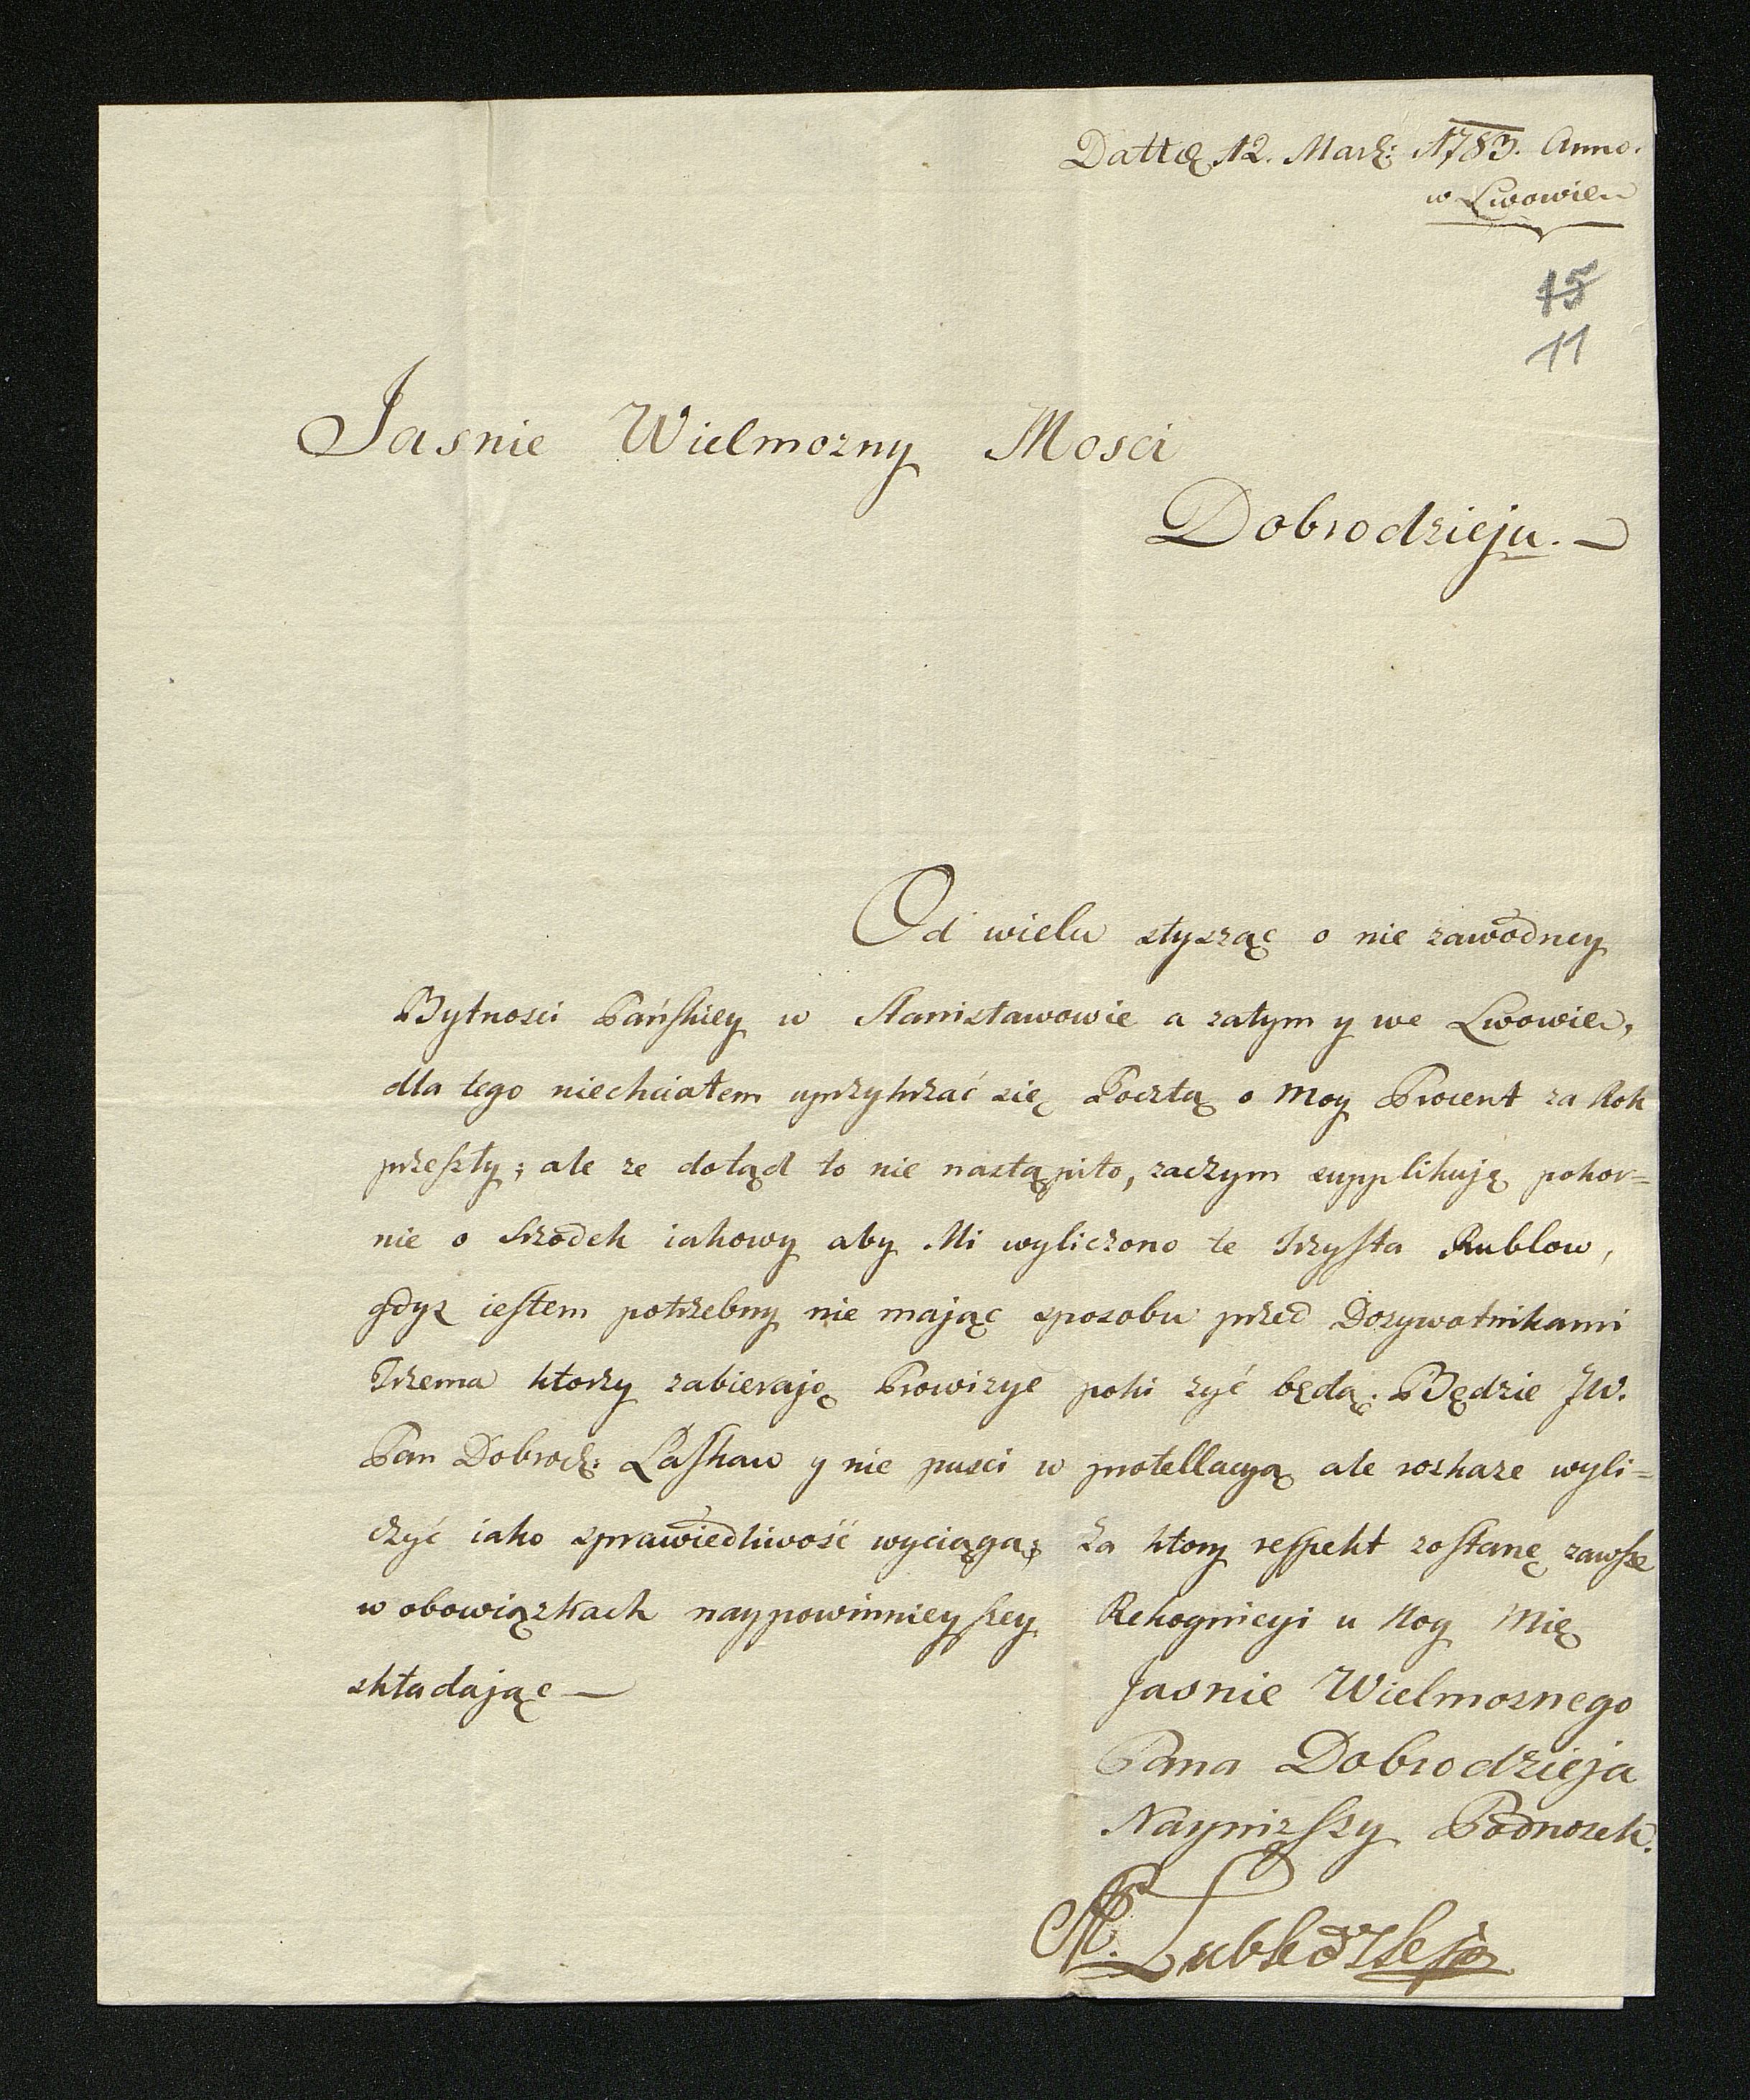 Dattę 12. Marz: 1783. Anno.
w Lwowie
15
11
Jasnie Wielmozny Mosci
Dobrodzieju.
Od wielu słysząc o nie zawodney
Bytnosci Pańskiey w Stanisławowie a zatym y we Lwowie,
dla tego niechciałem uprzykrzać się Pocztą o Moy Procent za Rok
przeszły; ale ze dotąd to nie nastąpiło, zaczym supplikuję pokor=
nie o srzodek iakowy aby Mi wyliczono te Trzysta Rublow,
gdyz iestem potrzebny nie mając sposobu przed Dozywotnikami
Trzema ktorzy zabierają Prowizye poki zyć będą. Będzie JW.
Pan Dobrodz: Laskaw y nie pusci w protellacyą ale roskaze wyli=
czyć iako sprawiedliwość wyciąga; Za ktory respekt zostanę zawsze
w obowiązkach naypowinnieyszey Rekognicyi u Nog Mię
składając —
Jasnie Wielmoznego
Pana Dobrodzieja
Naynizszy Podnozek.